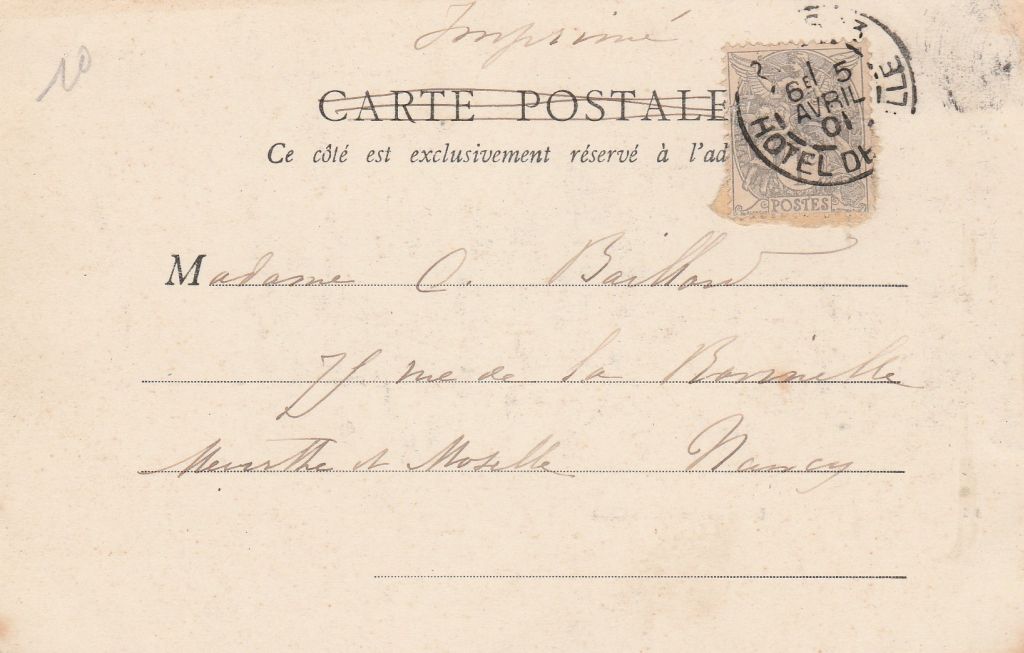 10
Imprimé
CARTE POSTALE
Ce côté est exclusivement réservé à l'ad
6E 5
AVRIL
01
HOTEL DE
LLE
POSTES
Madame C. Baillard
75 rue de la
Meurthe et Moselle Nancy